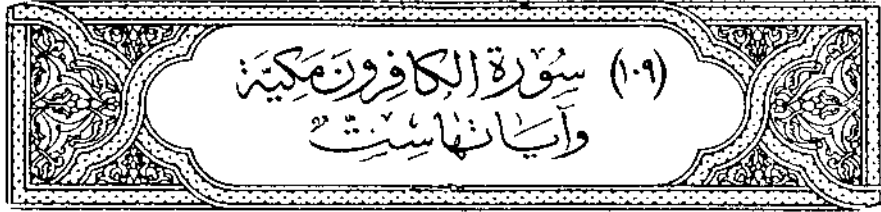 (١٠٩) سُورَة الكافِرُونَ مَكِيَّة
وَآيَاتهَا سِتٌّ